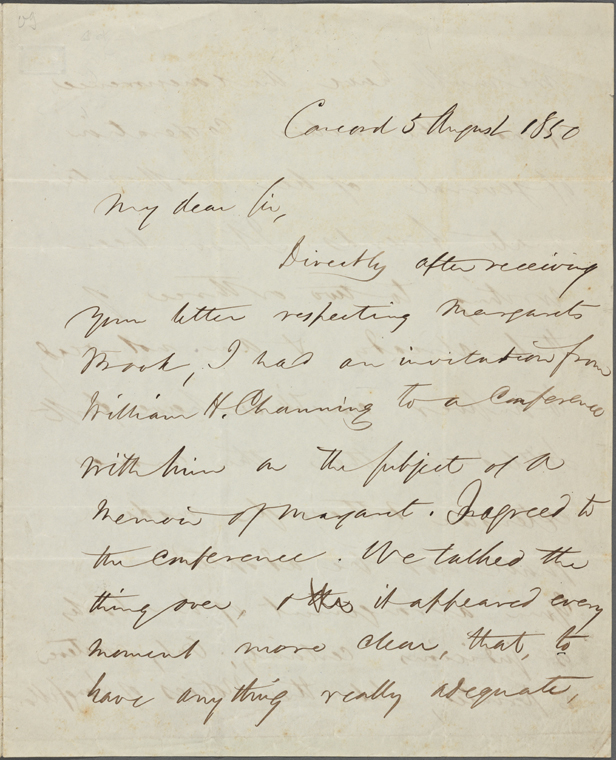 Concord 5 August 1850
My dear Sir,
Directly after receiving
your letter respecting Margaret's
Book, I had an invitation from
William H. Channing to a Conference
with him on the subject of a
Memoir of Margaret. I agreed to
the conference. We talked the
thing over & it appeared every
moment more clear, that, to
have anything really adequate,